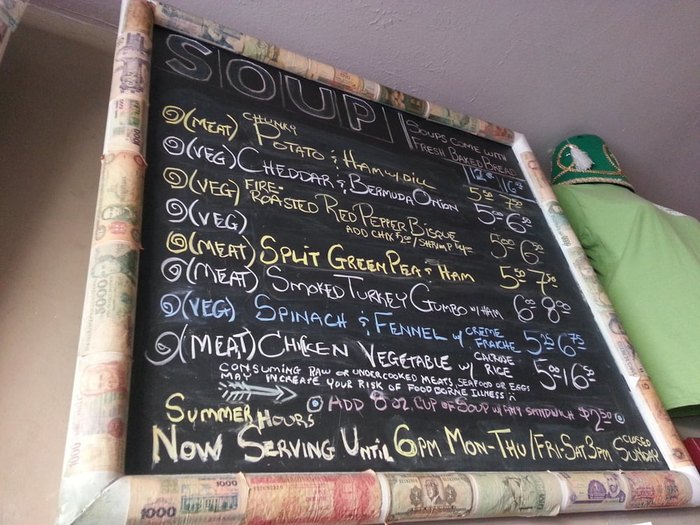 SOUP
SOUPS COME WITH
FRESH BAKED BREAD
12oz 16oz
(MEAT) CHUNKY POTATO & HAM W/ DILL 5.50 7.50
(VEG) CHEDDAR & BERMUDA ONION 5.00 6.50
(VEG) FIRE-ROASTED RED PEPPER BISQUE 5.00 6.50
(VEG) ADD CHKN
(MEAT) SPLIT GREEN PEA & HAM 5.50 7.50
(MEAT) SMOKED TURKEY GUMBO W/ HAM 6.00 8.00
(VEG) SPINACH & FENNEL W/ CRÈME FRAICHE 5.25 6.75
(MEAT) CHICKEN VEGETABLE W/ RICE 5.00 6.50
CONSUMING RAW OR UNDERCOOKED MEATS, SEAFOOD OR EGGS
MAY INCREASE YOUR RISK OF FOOD BORNE ILLNESS
ADD 8 OZ. CUP OF SOUP W/ ANY SANDWICH $2.50
SUMMER HOURS
NOW SERVING UNTIL 6PM MON-THU/FRI-SAT 8PM CLOSED SUNDAY
1000
5000
1000
1000